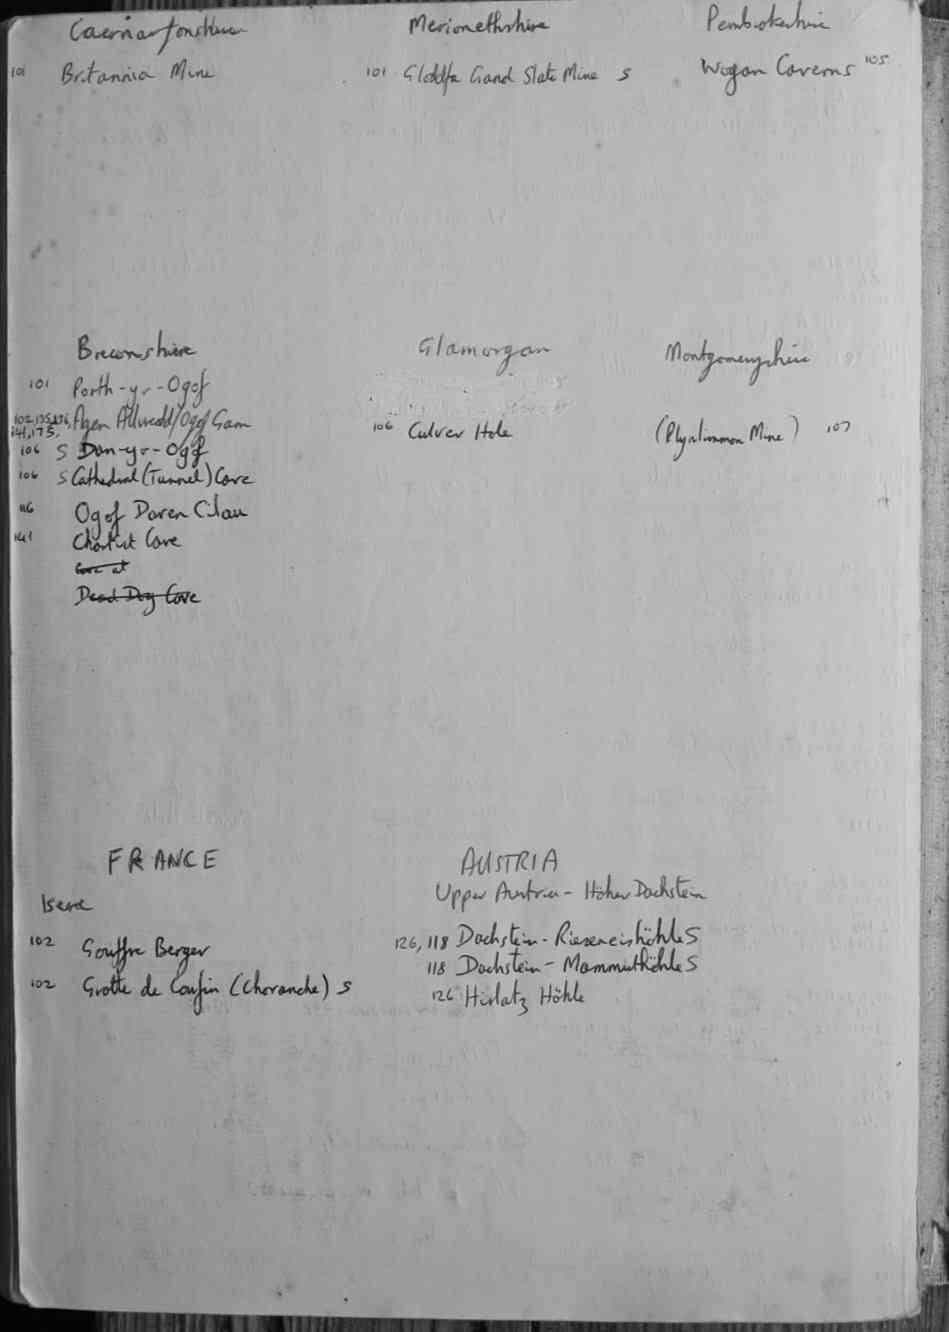 Caernarfonshire
101 Britannia Mine
Merionethshire
101 Gloddfa Gand Slate Mine S
Pembrokeshire
Wogan Caverns 105
Breconshire
101 Porth-yr-Ogof
102, 135, 136, Agen Allwedd/Ogof Gam
141, 175.
106 S Dan-yr-Ogof
106 S Cathedral (Tunnel) Cave
116 Ogof Daren Cilau
141 Chartist Cave
Cave at
Dead Dog Cave
Glamorgan
106 Culver Hole
Montgomeryshire
(Plynlimmon Mine) 107
FRANCE
Isere
102 Gouffre Berger
102 Grotte de Coufin (Choranche) S
AUSTRIA
Upper Austria - Höher Dachstein
126, 118 Dachstein - Rieseneishöhle S
118 Dachstein - Mammuthöhle S
126 Hirlatz Höhle